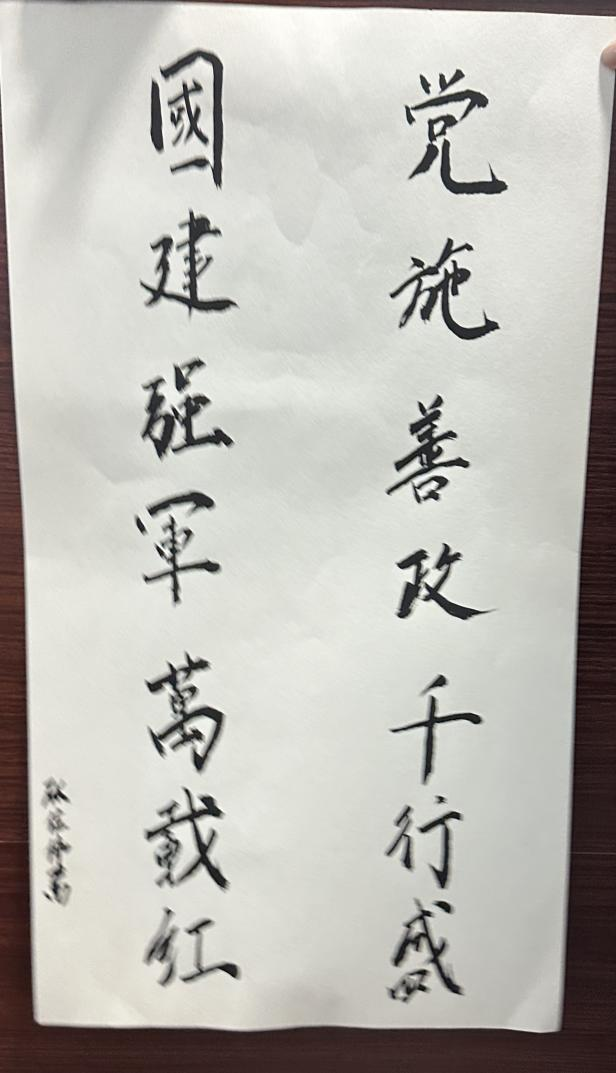 党施善政千行盛
國建强軍萬載红